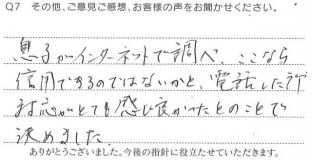 Q7 その他、ご意見ご感想、お客様の声をお聞かせください。
息子がインターネットで調べ、ここなら
信用できるのではないかと、電話した所
対応がとても感じ良かったとのことで
決めました。
ありがとうございました。今後の指針に役立たせていただきます。